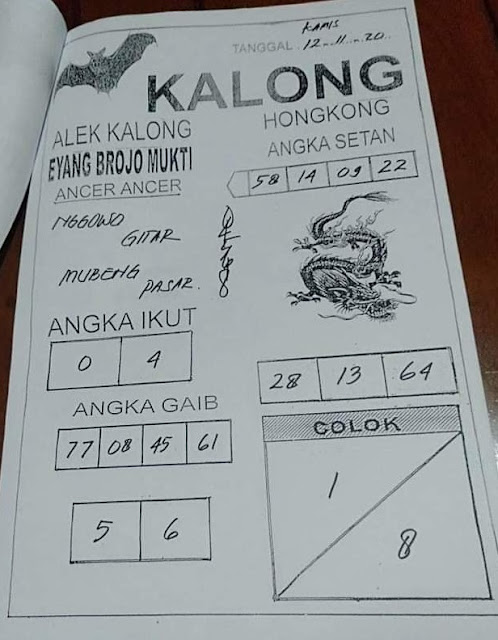 KAMIS
TANGGAL . 12...11...20..
KALONG
HONGKONG
ALEK KALONG
EYANG BROJO MUKTI
ANCER ANCER
NGGOWO
GITAR
MUBENG
PASAR.
ANGKA SETAN
58 14 09 22
ANGKA IKUT
0 4
28 13 64
ANGKA GAIB
77 08 45 61
5 6
COLOK
1
8